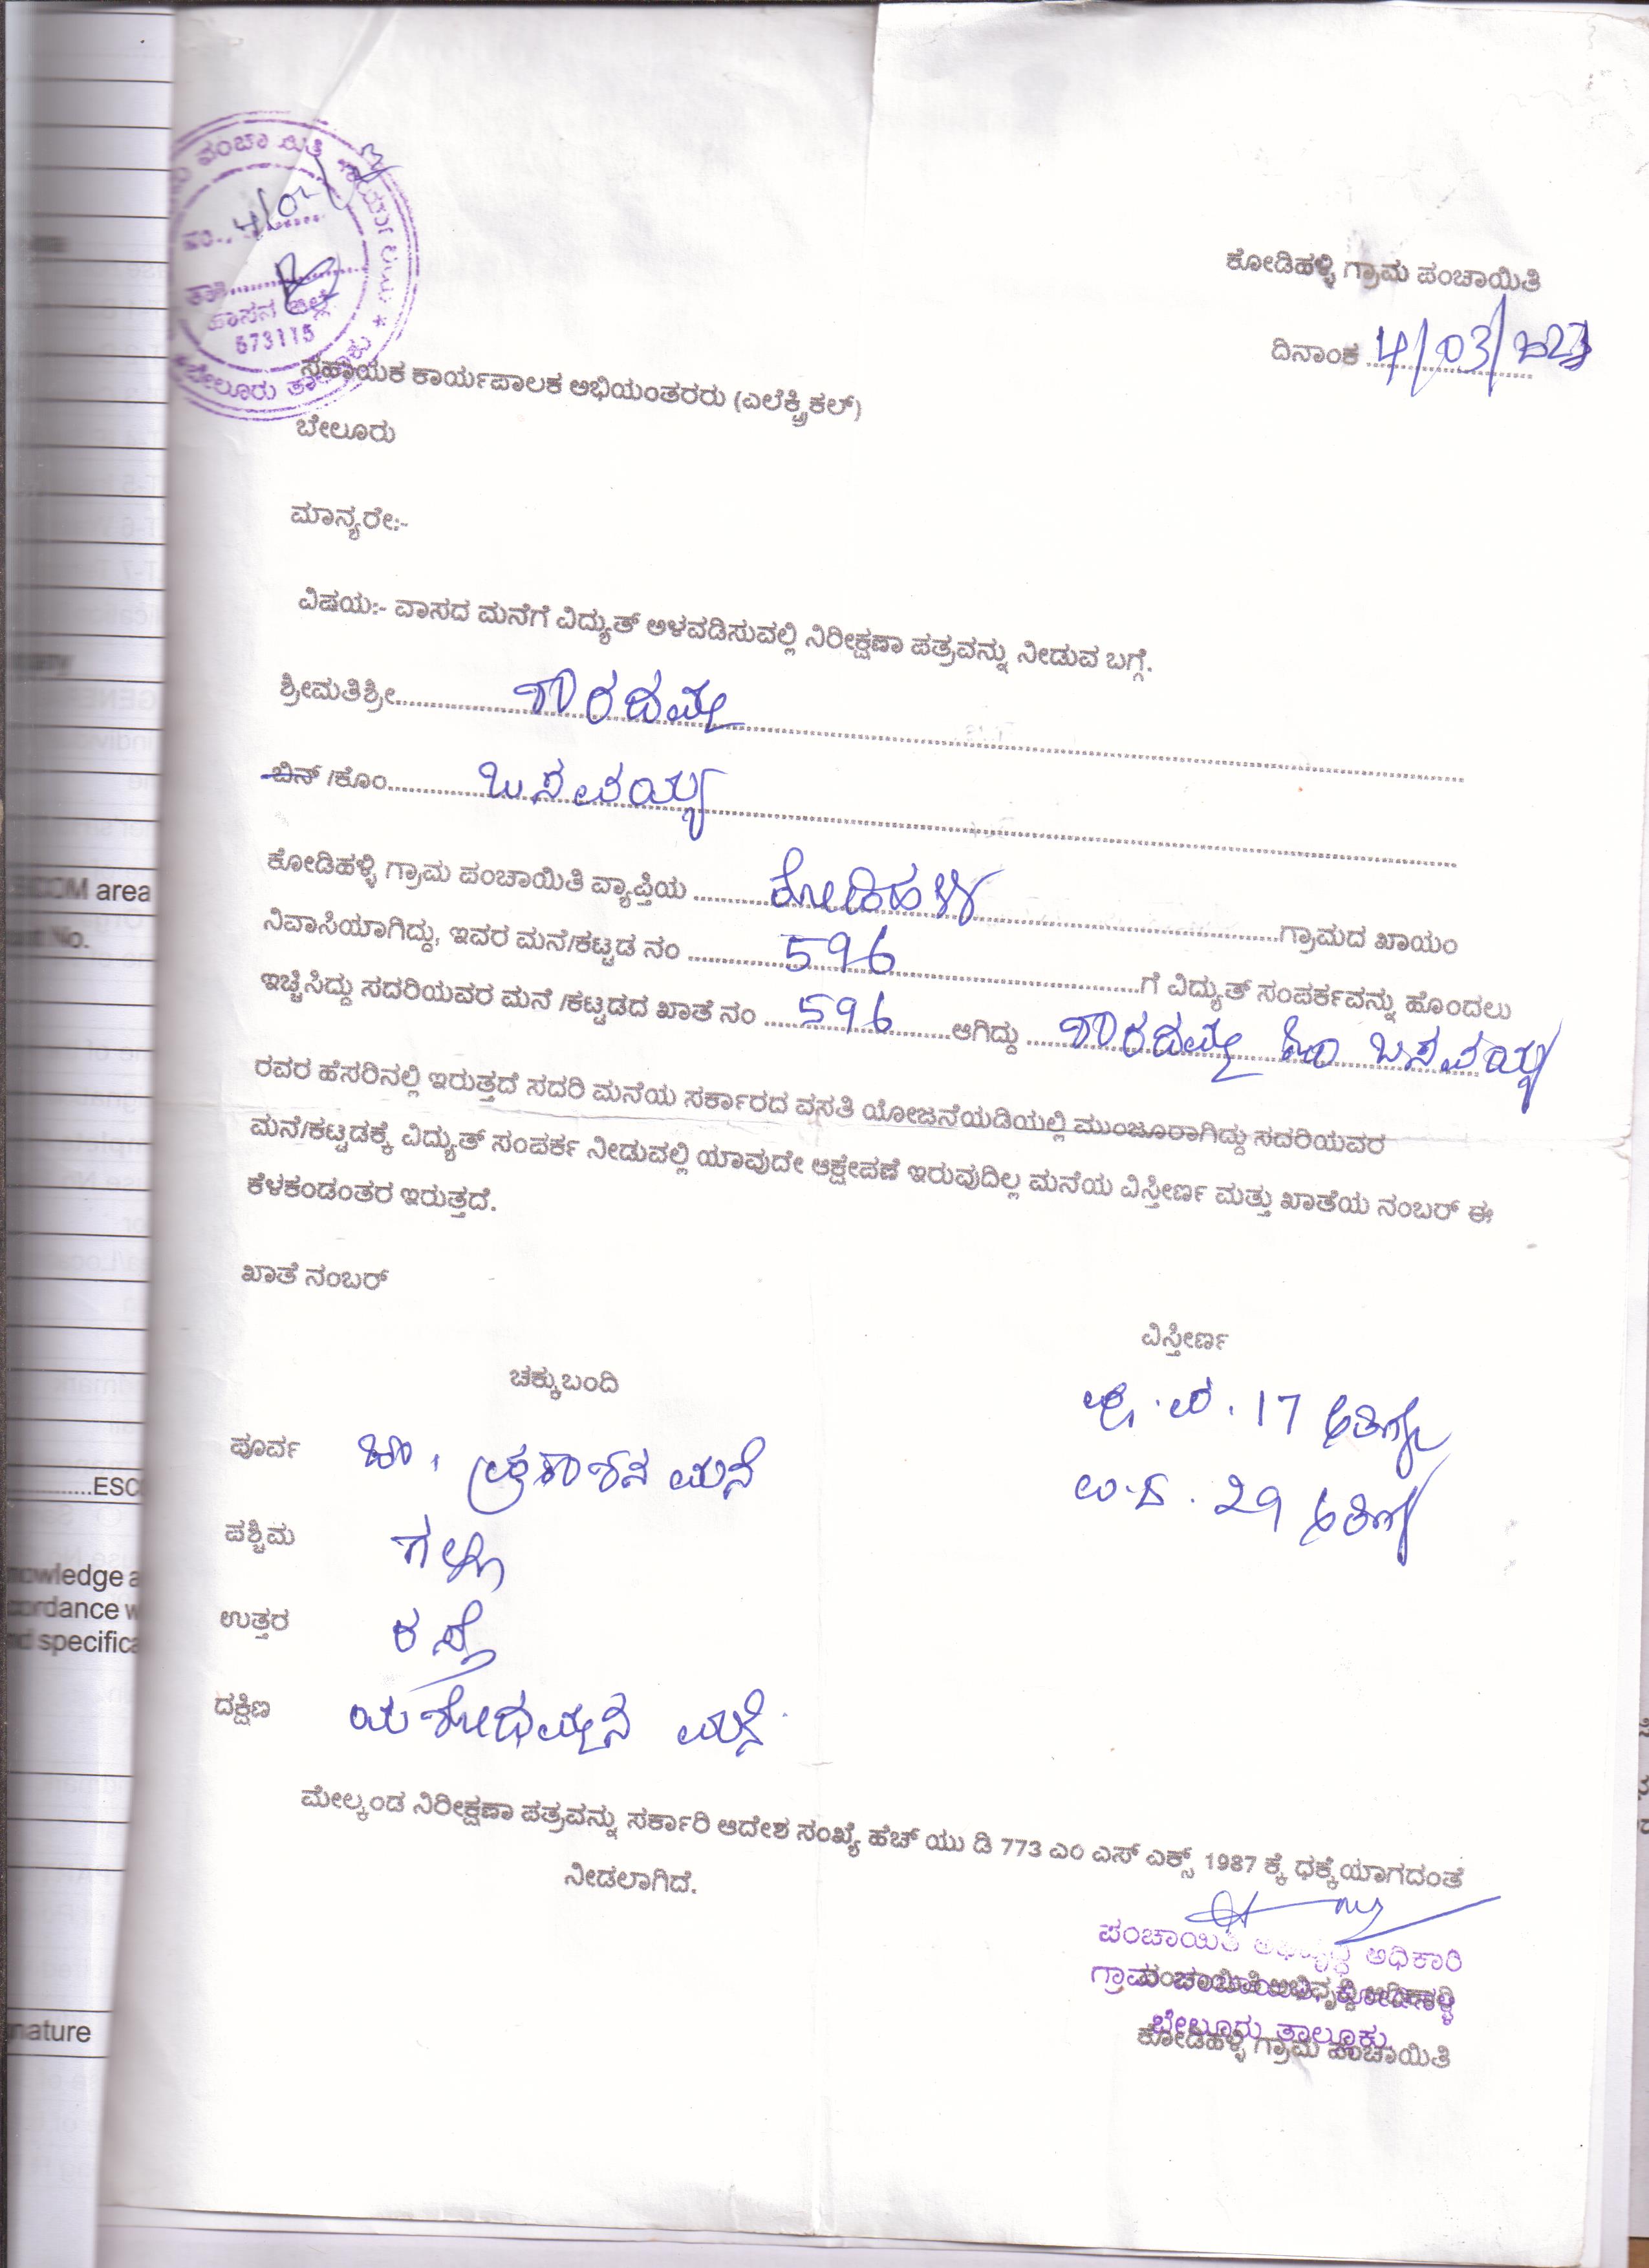 ಪಂಚಾಯಿತಿ ಕಾರ್ಯಾಲಯ
ಸಂ..
ಹಾಸನ ಜಿಲ್ಲೆ
573115
ಬೇಲೂರು ತಾಲ್ಲೂಕು
ಕೋಡಿಹಳ್ಳಿ ಗ್ರಾಮ ಪಂಚಾಯಿತಿ
ದಿನಾಂಕ 4/03/2023
ಸಹಾಯಕ ಕಾರ್ಯಪಾಲಕ ಅಭಿಯಂತರರು (ಎಲೆಕ್ಟ್ರಿಕಲ್)
ಬೇಲೂರು
ಮಾನ್ಯರೇ:-
ವಿಷಯ:- ವಾಸದ ಮನೆಗೆ ವಿದ್ಯುತ್ ಅಳವಡಿಸುವಲ್ಲಿ ನಿರೀಕ್ಷಣಾ ಪತ್ರವನ್ನು ನೀಡುವ ಬಗ್ಗೆ.
ಶ್ರೀಮತಿಶ್ರೀ ಶಾರದಮ್ಮ
ಬಿನ್ /ಕೊಂ ಬಸವಯ್ಯ
ಕೋಡಿಹಳ್ಳಿ ಗ್ರಾಮ ಪಂಚಾಯಿತಿ ವ್ಯಾಪ್ತಿಯ ಕೋಡಿಹಳ್ಳಿ ಗ್ರಾಮದ ಖಾಯಂ
ನಿವಾಸಿಯಾಗಿದ್ದು, ಇವರ ಮನೆ/ಕಟ್ಟಡ ನಂ 596 ಗೆ ವಿದ್ಯುತ್ ಸಂಪರ್ಕವನ್ನು ಹೊಂದಲು
ಇಚ್ಚಿಸಿದ್ದು ಸದರಿಯವರ ಮನೆ /ಕಟ್ಟಡದ ಖಾತೆ ನಂ 596 ಆಗಿದ್ದು ಶಾರದಮ್ಮ ಕೊಂ ಬಸವಯ್ಯ
ರವರ ಹೆಸರಿನಲ್ಲಿ ಇರುತ್ತದೆ ಸದರಿ ಮನೆಯ ಸರ್ಕಾರದ ವಸತಿ ಯೋಜನೆಯಡಿಯಲ್ಲಿ ಮುಂಜೂರಾಗಿದ್ದು ಸದರಿಯವರ
ಮನೆ/ಕಟ್ಟಡಕ್ಕೆ ವಿದ್ಯುತ್ ಸಂಪರ್ಕ ನೀಡುವಲ್ಲಿ ಯಾವುದೇ ಆಕ್ಷೇಪಣೆ ಇರುವುದಿಲ್ಲ ಮನೆಯ ವಿಸ್ತೀರ್ಣ ಮತ್ತು ಖಾತೆಯ ನಂಬರ್ ಈ
ಕೆಳಕಂಡಂತರ ಇರುತ್ತದೆ.
ಖಾತೆ ನಂಬರ್
ವಿಸ್ತೀರ್ಣ
ಚಕ್ಕುಬಂದಿ
ಪೂ.ಪ. 17 ಅಡಿಗಳು
ಪೂರ್ವ ಪ್ರಕಾಶನ ಮನೆ
ಉ.ದ. 29 ಅಡಿಗಳು
ಪಶ್ಚಿಮ ಗಲ್ಲಿ
ಉತ್ತರ ರಸ್ತೆ
ದಕ್ಷಿಣ ಯಶೋಧಮ್ಮನ ಮನೆ
ಮೇಲ್ಕಂಡ ನಿರೀಕ್ಷಣಾ ಪತ್ರವನ್ನು ಸರ್ಕಾರಿ ಆದೇಶ ಸಂಖ್ಯೆ ಹೆಚ್ ಯು ಡಿ 773 ಎಂ ಎಸ್ ಎಕ್ಸ್ 1987 ಕ್ಕೆ ಧಕ್ಕೆಯಾಗದಂತೆ
ನೀಡಲಾಗಿದೆ.
ಪಂಚಾಯಿತಿ ಅಭಿವೃದ್ಧಿ ಅಧಿಕಾರಿ
ಬೇಲೂರು ತಾಲ್ಲೂಕು
ಕೋಡಿಹಳ್ಳಿ ಗ್ರಾಮ ಪಂಚಾಯಿತಿ
area
No.
ESC